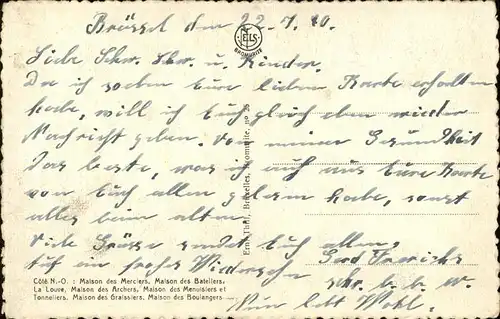 Brüssel den 22.7.40.
NELS
BROMURITE
Liebe Schw. Schw. u. Kinder.
Da ich soeben Eure lieben Karte erhalten
habe, will ich Euch gleich eben wieder
Nachricht geben. Von meiner Gesundheit
das beste, was ich auch aus Eure Karte
von Euch allen gelesen habe, sonst
alles beim alten.
Viele Grüsse sendet Euch allen,
Auf ein frohes Wiedersehn Gerd
Nun lebt Wohl.
Ern. Thill, Bruxelles, Bromurite, nº 26
Côté N.-O. : Maison des Merciers, Maison des Bateliers,
La Louve, Maison des Archers, Maison des Menuisiers et
Tonneliers, Maison des Graissiers, Maison des Boulangers